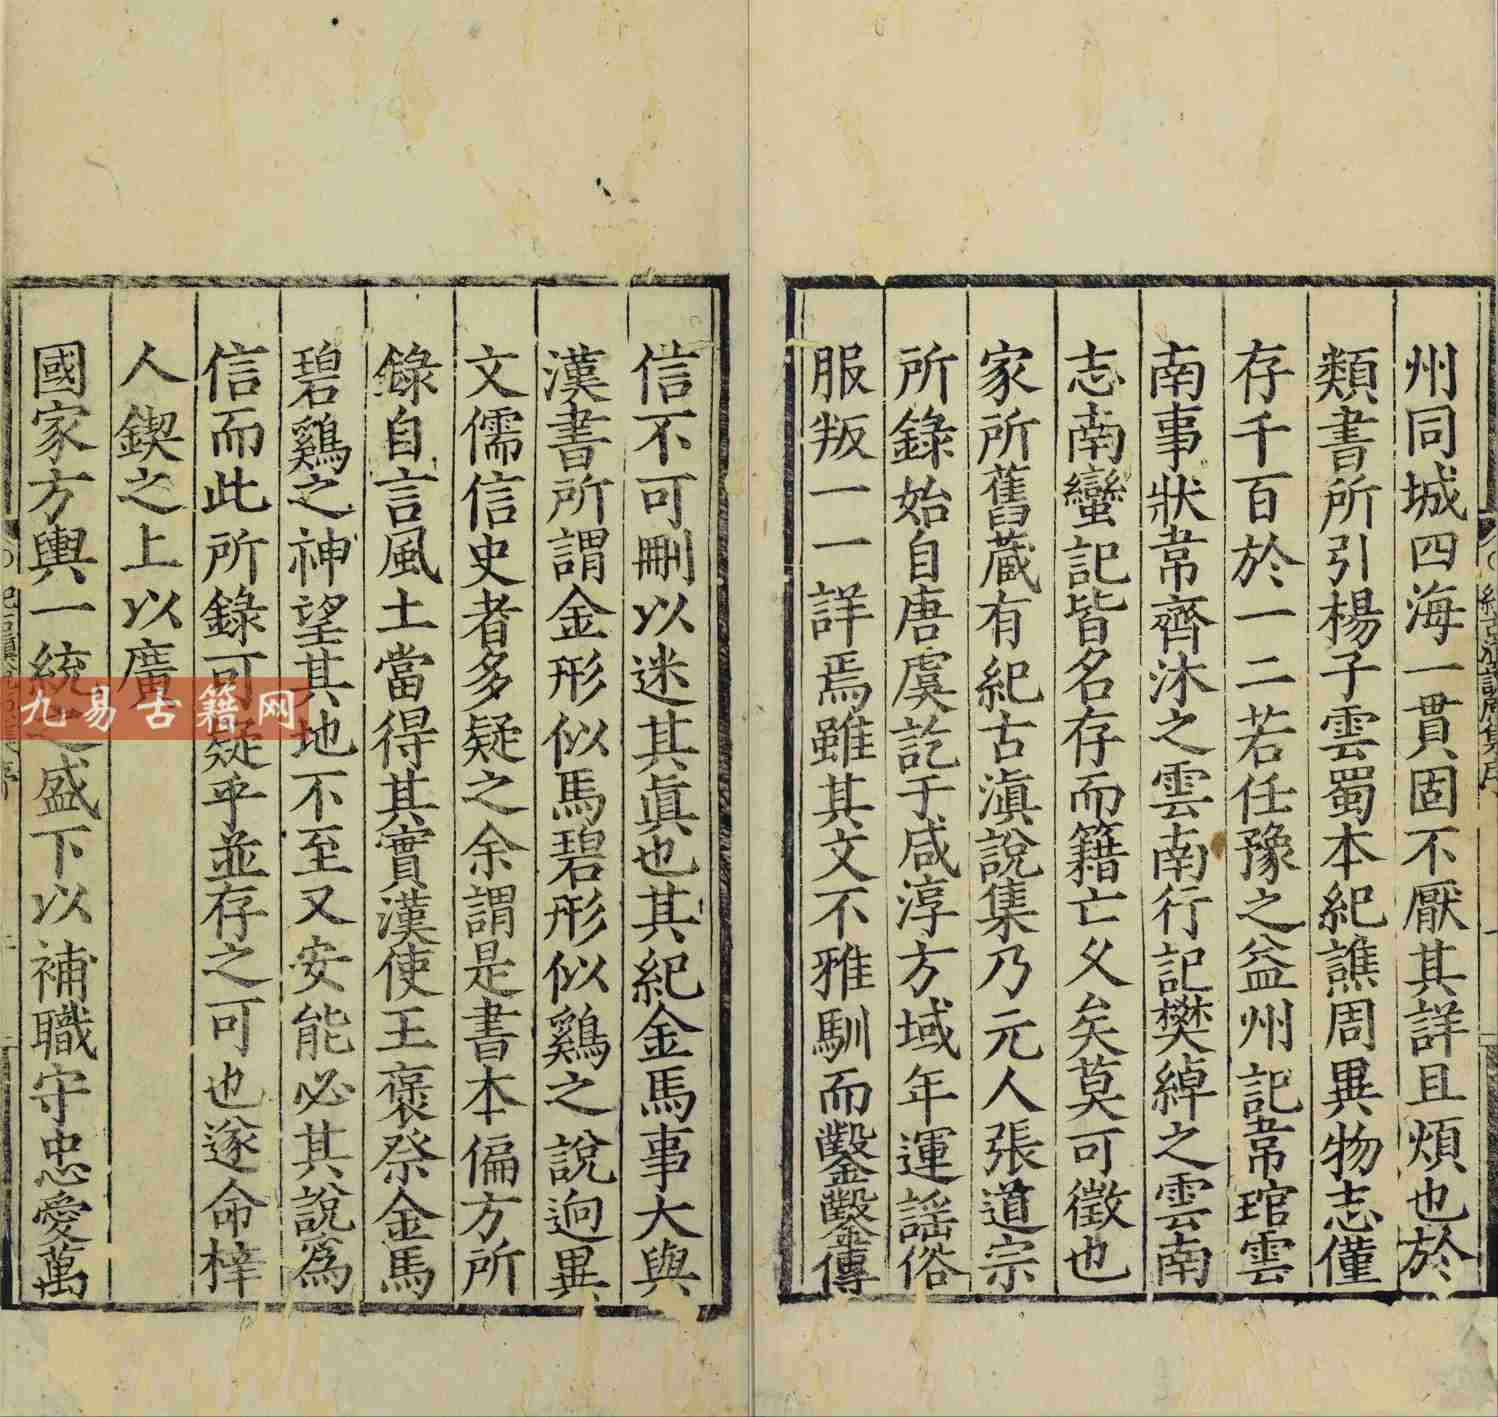 州同城四海一貫固不厭其詳且煩也於
類書所引楊子雲蜀本紀譙周異物志僅
存千百於一二若任豫之益州記韋琯雲
南事狀韋齊沐之雲南行記樊綽之雲南
志南蠻記皆名存而籍亡乆矣莫可徵也
家所舊藏有紀古滇說集乃元人張道宗
所錄始自唐虞訖于咸淳方域年運謡俗
服叛一一詳焉雖其文不雅馴而鑿鑿傳
信不可刪以迷其眞也其紀金馬事大與
漢書所謂金形似馬碧形似鷄之說逈異
文儒信史者多疑之余謂是書本偏方所
錄自言風土當得其實漢使王褒祭金馬
碧鷄之神望其地不至又安能必其說爲
信而此所錄可疑乎並存之可也遂命梓
人鍥之上以廣
國家方輿一統之盛下以補職守忠愛萬
九易古籍网